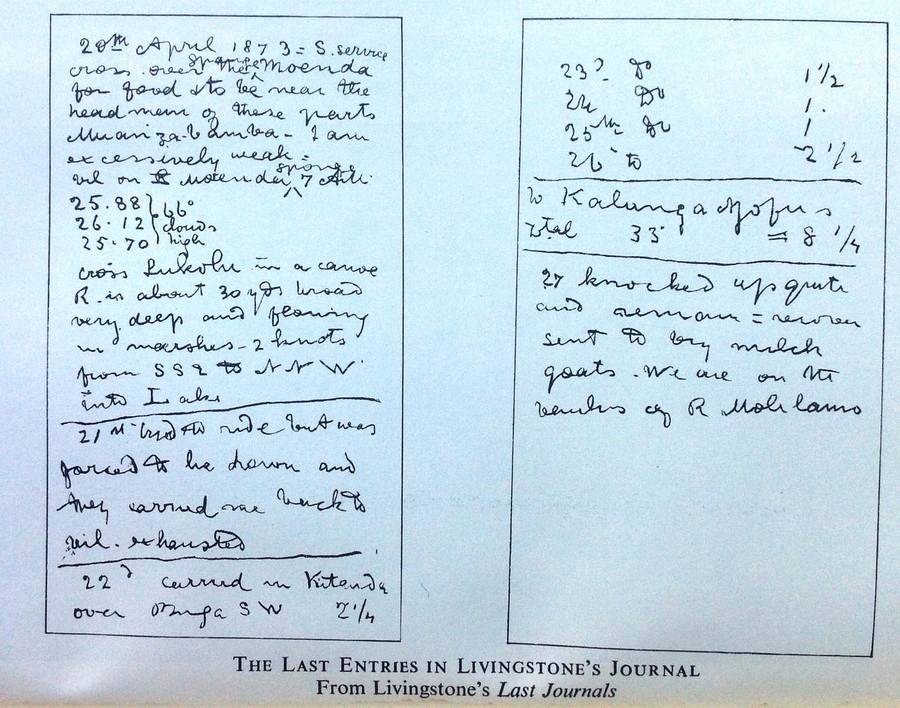 20th April 1873 = S. service
cross over the sponge Moenda
for food & to be near the
headman of these parts
Muanza-bamba - I am
excessively weak =
vil on Moenda sponge 7 A.M.
25.88
26.12 } 66° clouds high
25.70
cross Lukolu in a canoe
R. is about 30 yds broad
very deep and flowing
in marshes - 2 knots
from SSE to NNW
into Lake
21st tried to ride but was
forced to lie down and
they carried me back to
vil. exhausted
22d carried in Kitanda
over Buga SW 2 1/4
23d Do 1 1/2
24 Do 1.
25th Do 1
26 to 2 1/2
to Kalunganjofus
total 33 = 8 1/4
27 knocked up quite
and remain = recover
sent to buy milch
goats. We are on the
banks of R Molilamo
THE LAST ENTRIES IN LIVINGSTONE'S JOURNAL
From Livingstone's Last Journals